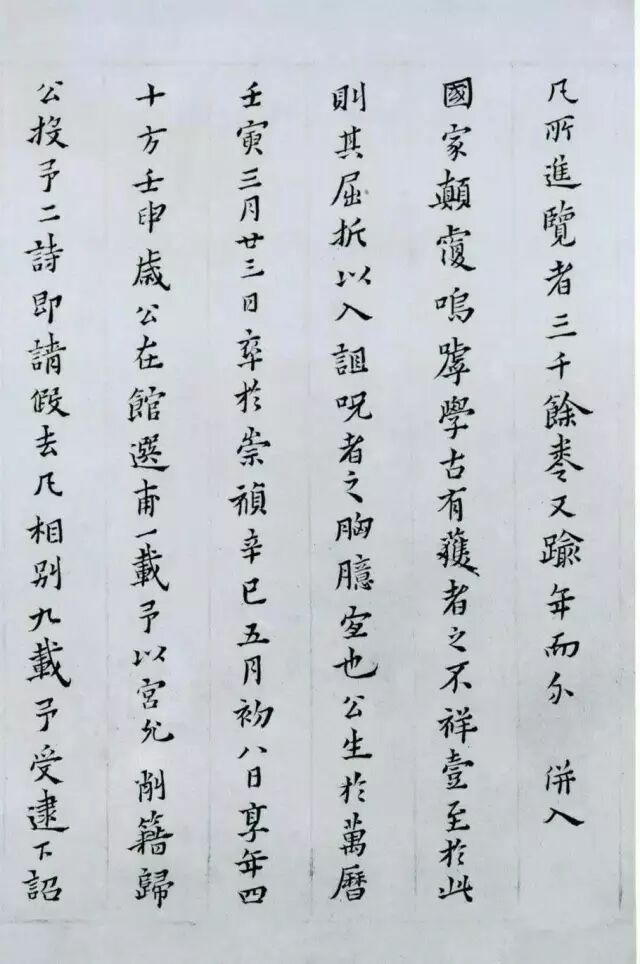 凡所進覽者三千餘卷又踰年而尒 併入
國家顛覆嗚嘑學古有獲者之不祥壹至於此
則其屈折以入詛呪者之胸臆宜也公生於萬曆
壬寅三月廿三日卒於崇禎辛巳五月初八日享年四
十方壬申歲公在館選甫一載予以宮允削籍歸
公投予二詩即請假去凡相別九載予受逮下詔